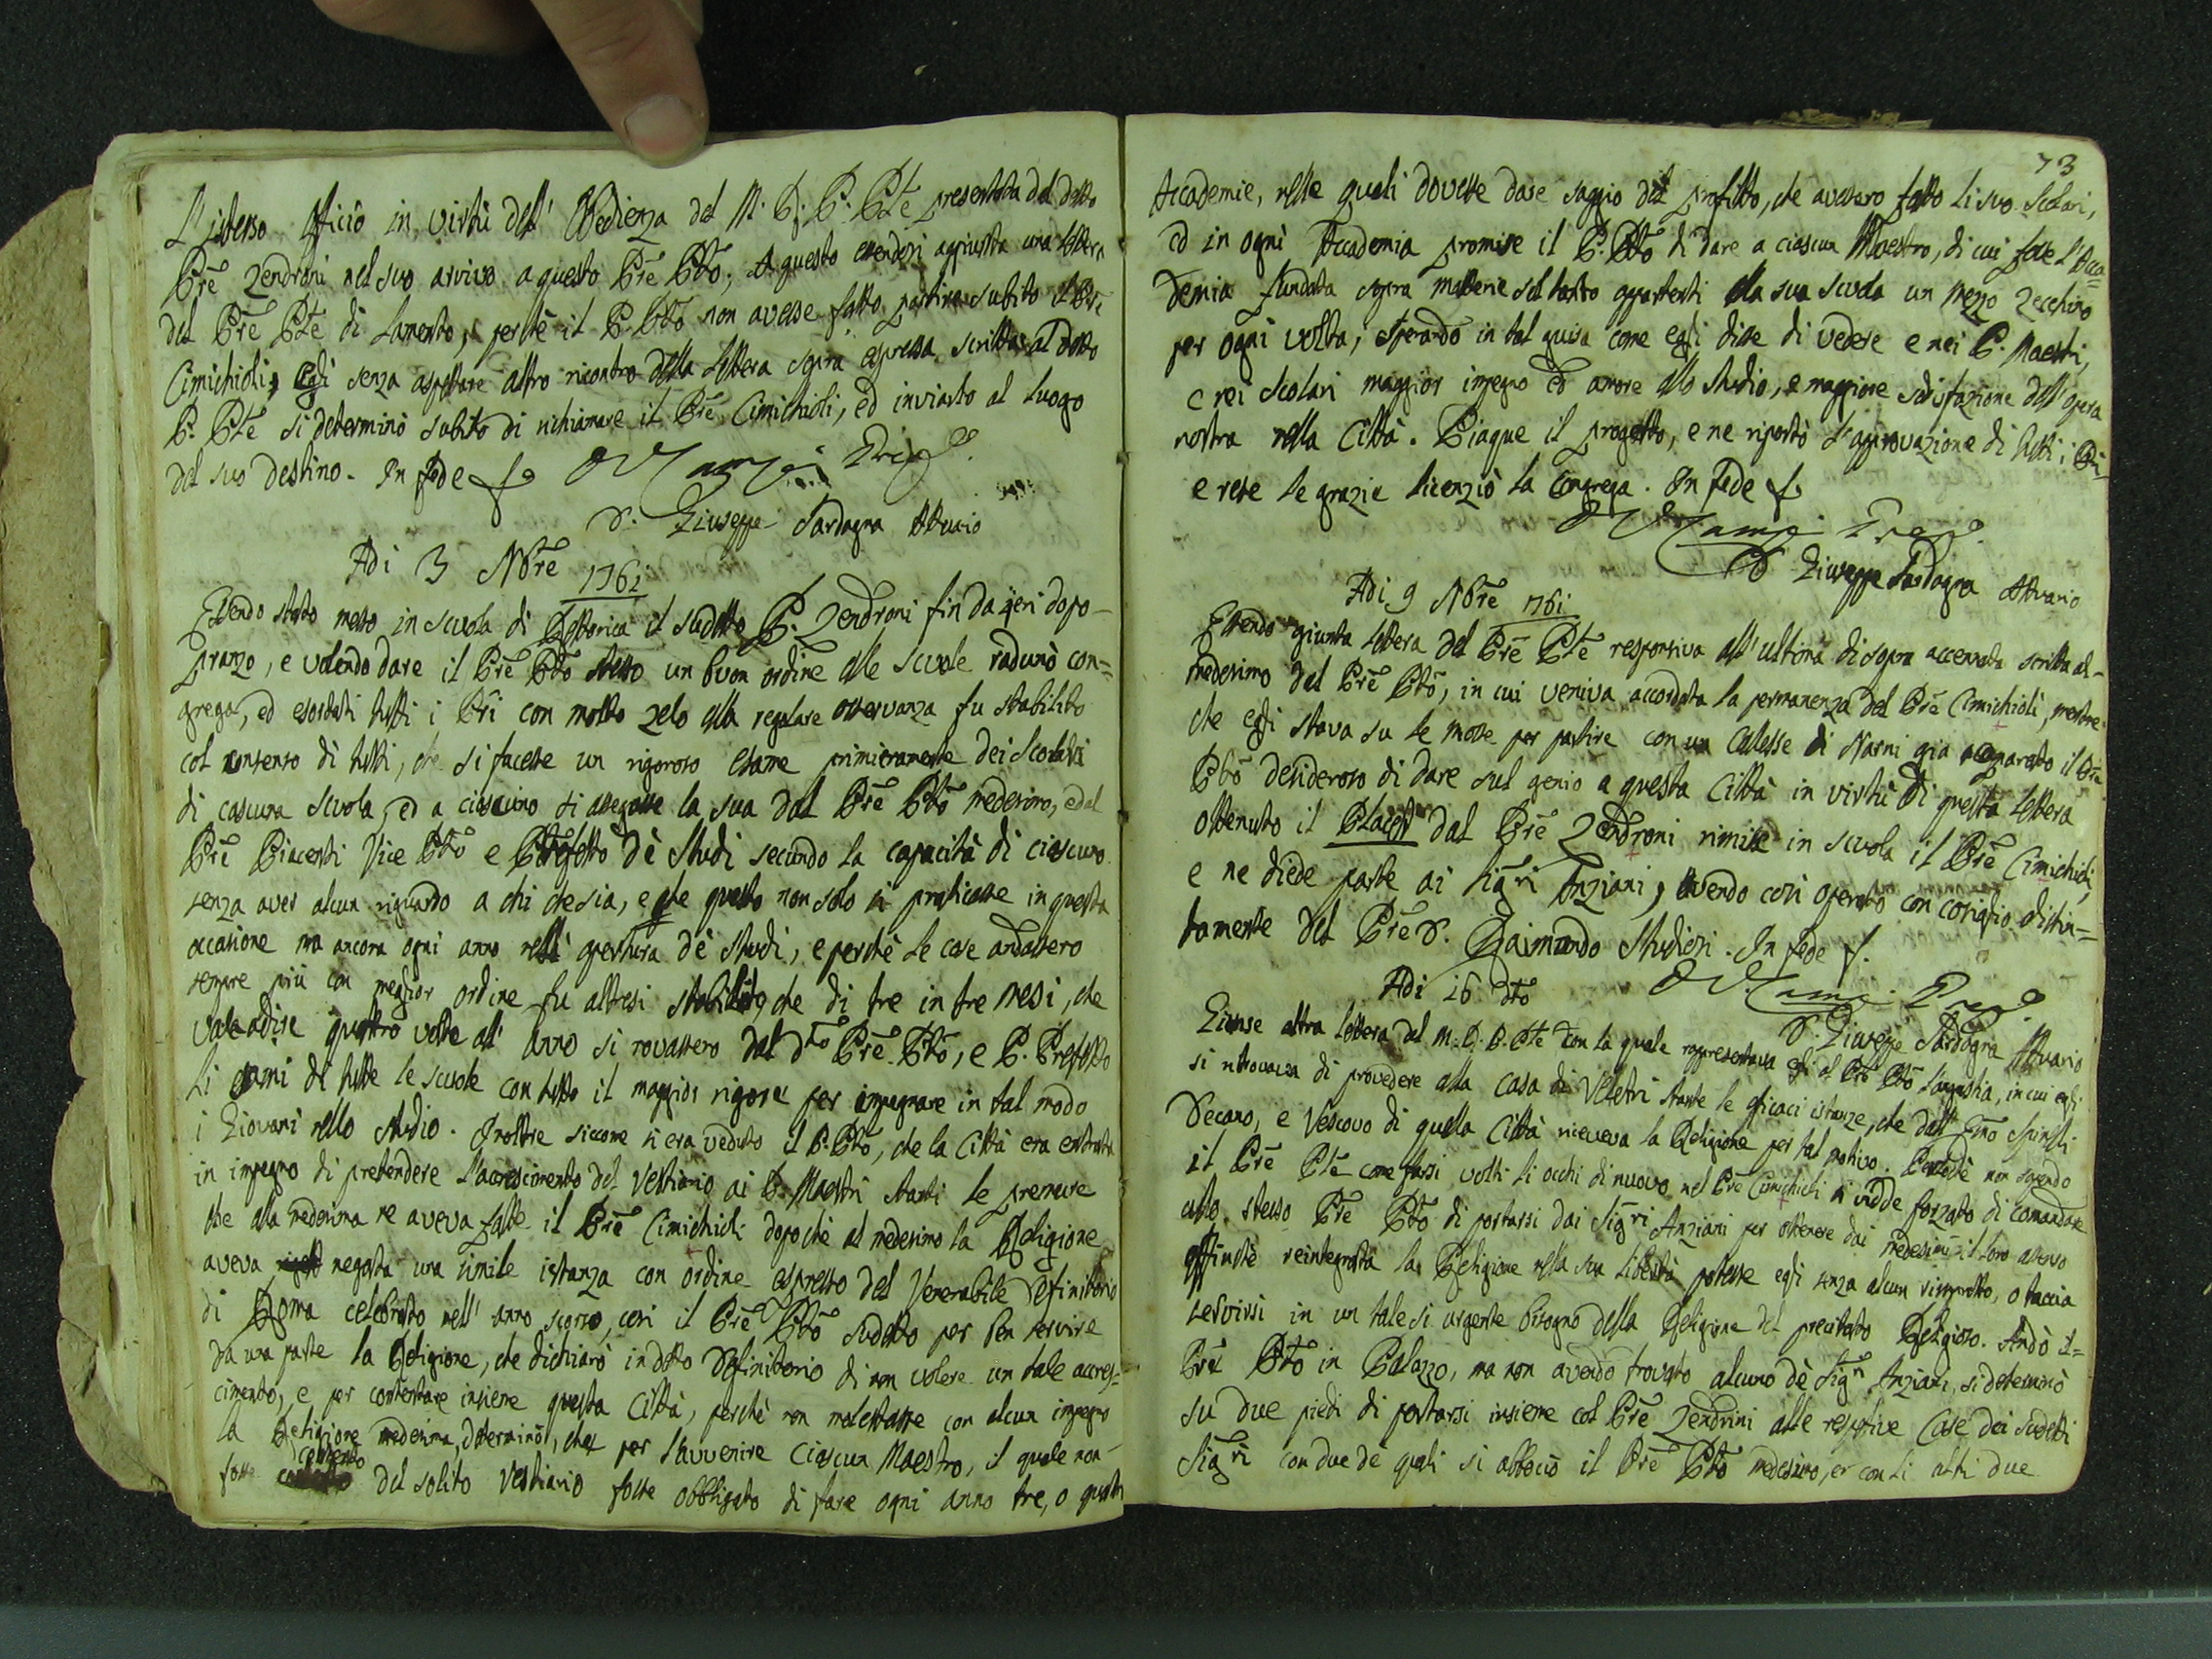 L'istesso Officio in virtù dell' Obedienza del M. R. P. Pnte presentata dal detto
Prē Zendroni nel suo arrivo a questo Prē Ptto, A questo essendosi aggiunta una lettera
del Prē Pnte di lamento, perchè il P. Ptto non avesse fatto partire subito il Prē
Cimichioli, Egli senza aspettare altro riscontro della lettera sopra espressa scritta al detto
P. Pnte si determinò subito di richiamare il Prē Cimichioli, ed inviarlo al luogo
del suo destino. In fede
D. Giuseppe Sardagna Attuario
Adi 3 Nbre 1761
Essendo stato messo in scuola di Rettorica il sudetto P. Zendroni fin da jeri dopo-
pranzo, e volendo dare il Prē Ptto stesso un buon ordine alle scuole radunò con=
grega, ed esortati tutti i Pri con molto zelo alla regolare osservanza fu stabilito
col consenso di tutti, che si facesse un rigoroso esame primieramente dei Scolari
di cascuna scuola, ed a ciascuno si assegnasse la sua dal Prē Ptto medesimo, e dal
Prē Piacenti Vice Ptto e Prefetto dè studi secondo la capacità di ciascuno
senza aver alcun riguardo a chi che sia, e che questo non solo si praticasse in questa
occasione ma ancora ogni anno nell' apertura dè studi, e perchè le cose andassero
sempre più con meglior ordine fu altresi stabilito, che di tre in tre mesi, che
vale a dire quattro volte all' anno si rovassero dal dto Prē Ptto, e P. Prefetto
li esami di tutte le scuole con tutto il maggior rigore per impegnare in tal modo
i Giovani nello studio. Inoltre siccome si era veduto il P. Ptto, che la Città era entrata
in impegno di pretendere l'accrescimento del Vestiario ai P. Maestri stanti le premure
che alla medesima ne aveva fatte il Prē Cimichioli dopo chè al medesimo la Religione
aveva negata una simile istanza con ordine espresso del Venerabile Definitorio
di Roma celebrato nell' anno scorso, così il Prē Ptto sudetto per ben servire
da una parte la Religione, che dichiarò in detto Definitorio di non volere un tale accres=
cimento, e per contentare insieme questa Città, perchè non molestasse con alcun impegno
la Religione medesima, determinò, che per l'avvenire ciascun Maestro, il quale non-
fosse contento del solito Vestiario fosse obbligato di fare ogni anno tre, o quattro
73
Accademie, nelle quali dovesse dare saggio del profitto, che avessero fatto li suo Scolari,
ed in ogni Accademia promise il P. Ptto di dare a ciascun Maestro, di cui fosse l'Acca=
demia fundata sopra materie soltanto appartenti alla sua scuola un mezzo zecchino
per ogni volta, sperando in tal guisa come egli disse di vedere e nei P. Maestri,
e nei Scolari maggior impegno ed amore allo studio, e maggiore sodisfazione dell' opera
nostra nella Città. Piaque il progetto, e ne riportò l'approvazione di tutti i Pri
e rese le grazie licenziò la Congrega. In fede
D. Giuseppe Sardagna Attuario
Adi 9 Nbre 1761
Essendo giunta lettera del Prē Pnte responsiva all' ultima di sopra accennata scritta al-
medesimo dal Prē Ptto, in cui veniva accordata la permanenza del Prē Cimichioli, mentre
che egli stava su le mosse per partire con un Calesse di Narni già preparato il Prē
Ptto desideroso di dare sul genio a questa Città in virtù di questa lettera
ottenuto il Placet dal Prē Zendroni rimise in scuola il Prē Cimichioli,
e ne diede parte ai Sigri Anziani, avendo così operato con consiglio distin=
tamente del Prē D. Raimondo Studiosi. In fede
Adi 16 dto
D. Giuseppe Sardagna Attuario
Giunse altra lettera del M. R. P. Pnte con la quale rappresentava egli al Prē Ptto l'angustia, in cui egli
si ritrovava di provedere alla casa di Velletri stante le efficaci istanze, che dall' Emo Spinelli
Decano, e Vescovo di quella Città riceveva la Religione per tal motivo. Perlochè non sapendo
il Prē Pnte come farsi volti li occhi di nuovo nel Prē Cimichioli si vidde forzato di comandare
allo stesso Prē Ptto di portarsi dai Sigri Anziani per ottenere dai medesimi il loro assenso
affinchè reintegrata la Religione nella sua libertà potesse egli senza alcun rimprotto, o taccia
servirsi in un tale si urgente bisogno della Religione del precitato Religioso. Andò il=
Prē Ptto in Palazzo, ma non avendo trovato alcuno dè Sigri Anziani, si determinò
su due piedi di portarsi insieme col Prē Zendrini alle respettive Case dei sudetti
Sigri con due de quali si abboccò il Prē Ptto medesimo, er con li altri due